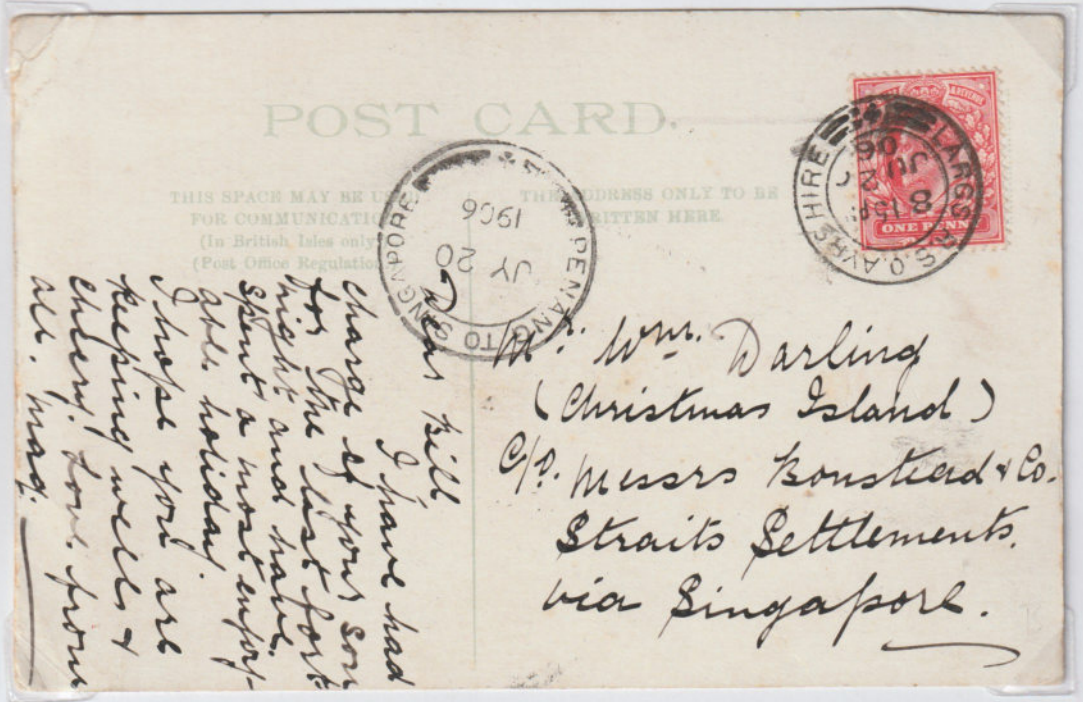 POST CARD
THIS SPACE MAY BE
FOR COMMUNICATIO
(In British Isles only
(Post Office Regulatio
THE ADDRESS ONLY TO BE
WRITTEN HERE
PENANG TO SINGAPORE
JY 20
1906
LARGS S.O. AYRSHIRE
8 15PM
JU
06
ONE PENNY
Dear Bill
I have had
charge of your son
for the last fort
night and have
spent a most enjoy-
able holiday.
I hope you are
keeping well &
cheery. Love from
all. Mag.
Mr. Wm. Darling
(Christmas Island)
C/o. Messrs Boustead & Co.
Straits Settlements.
via Singapore.